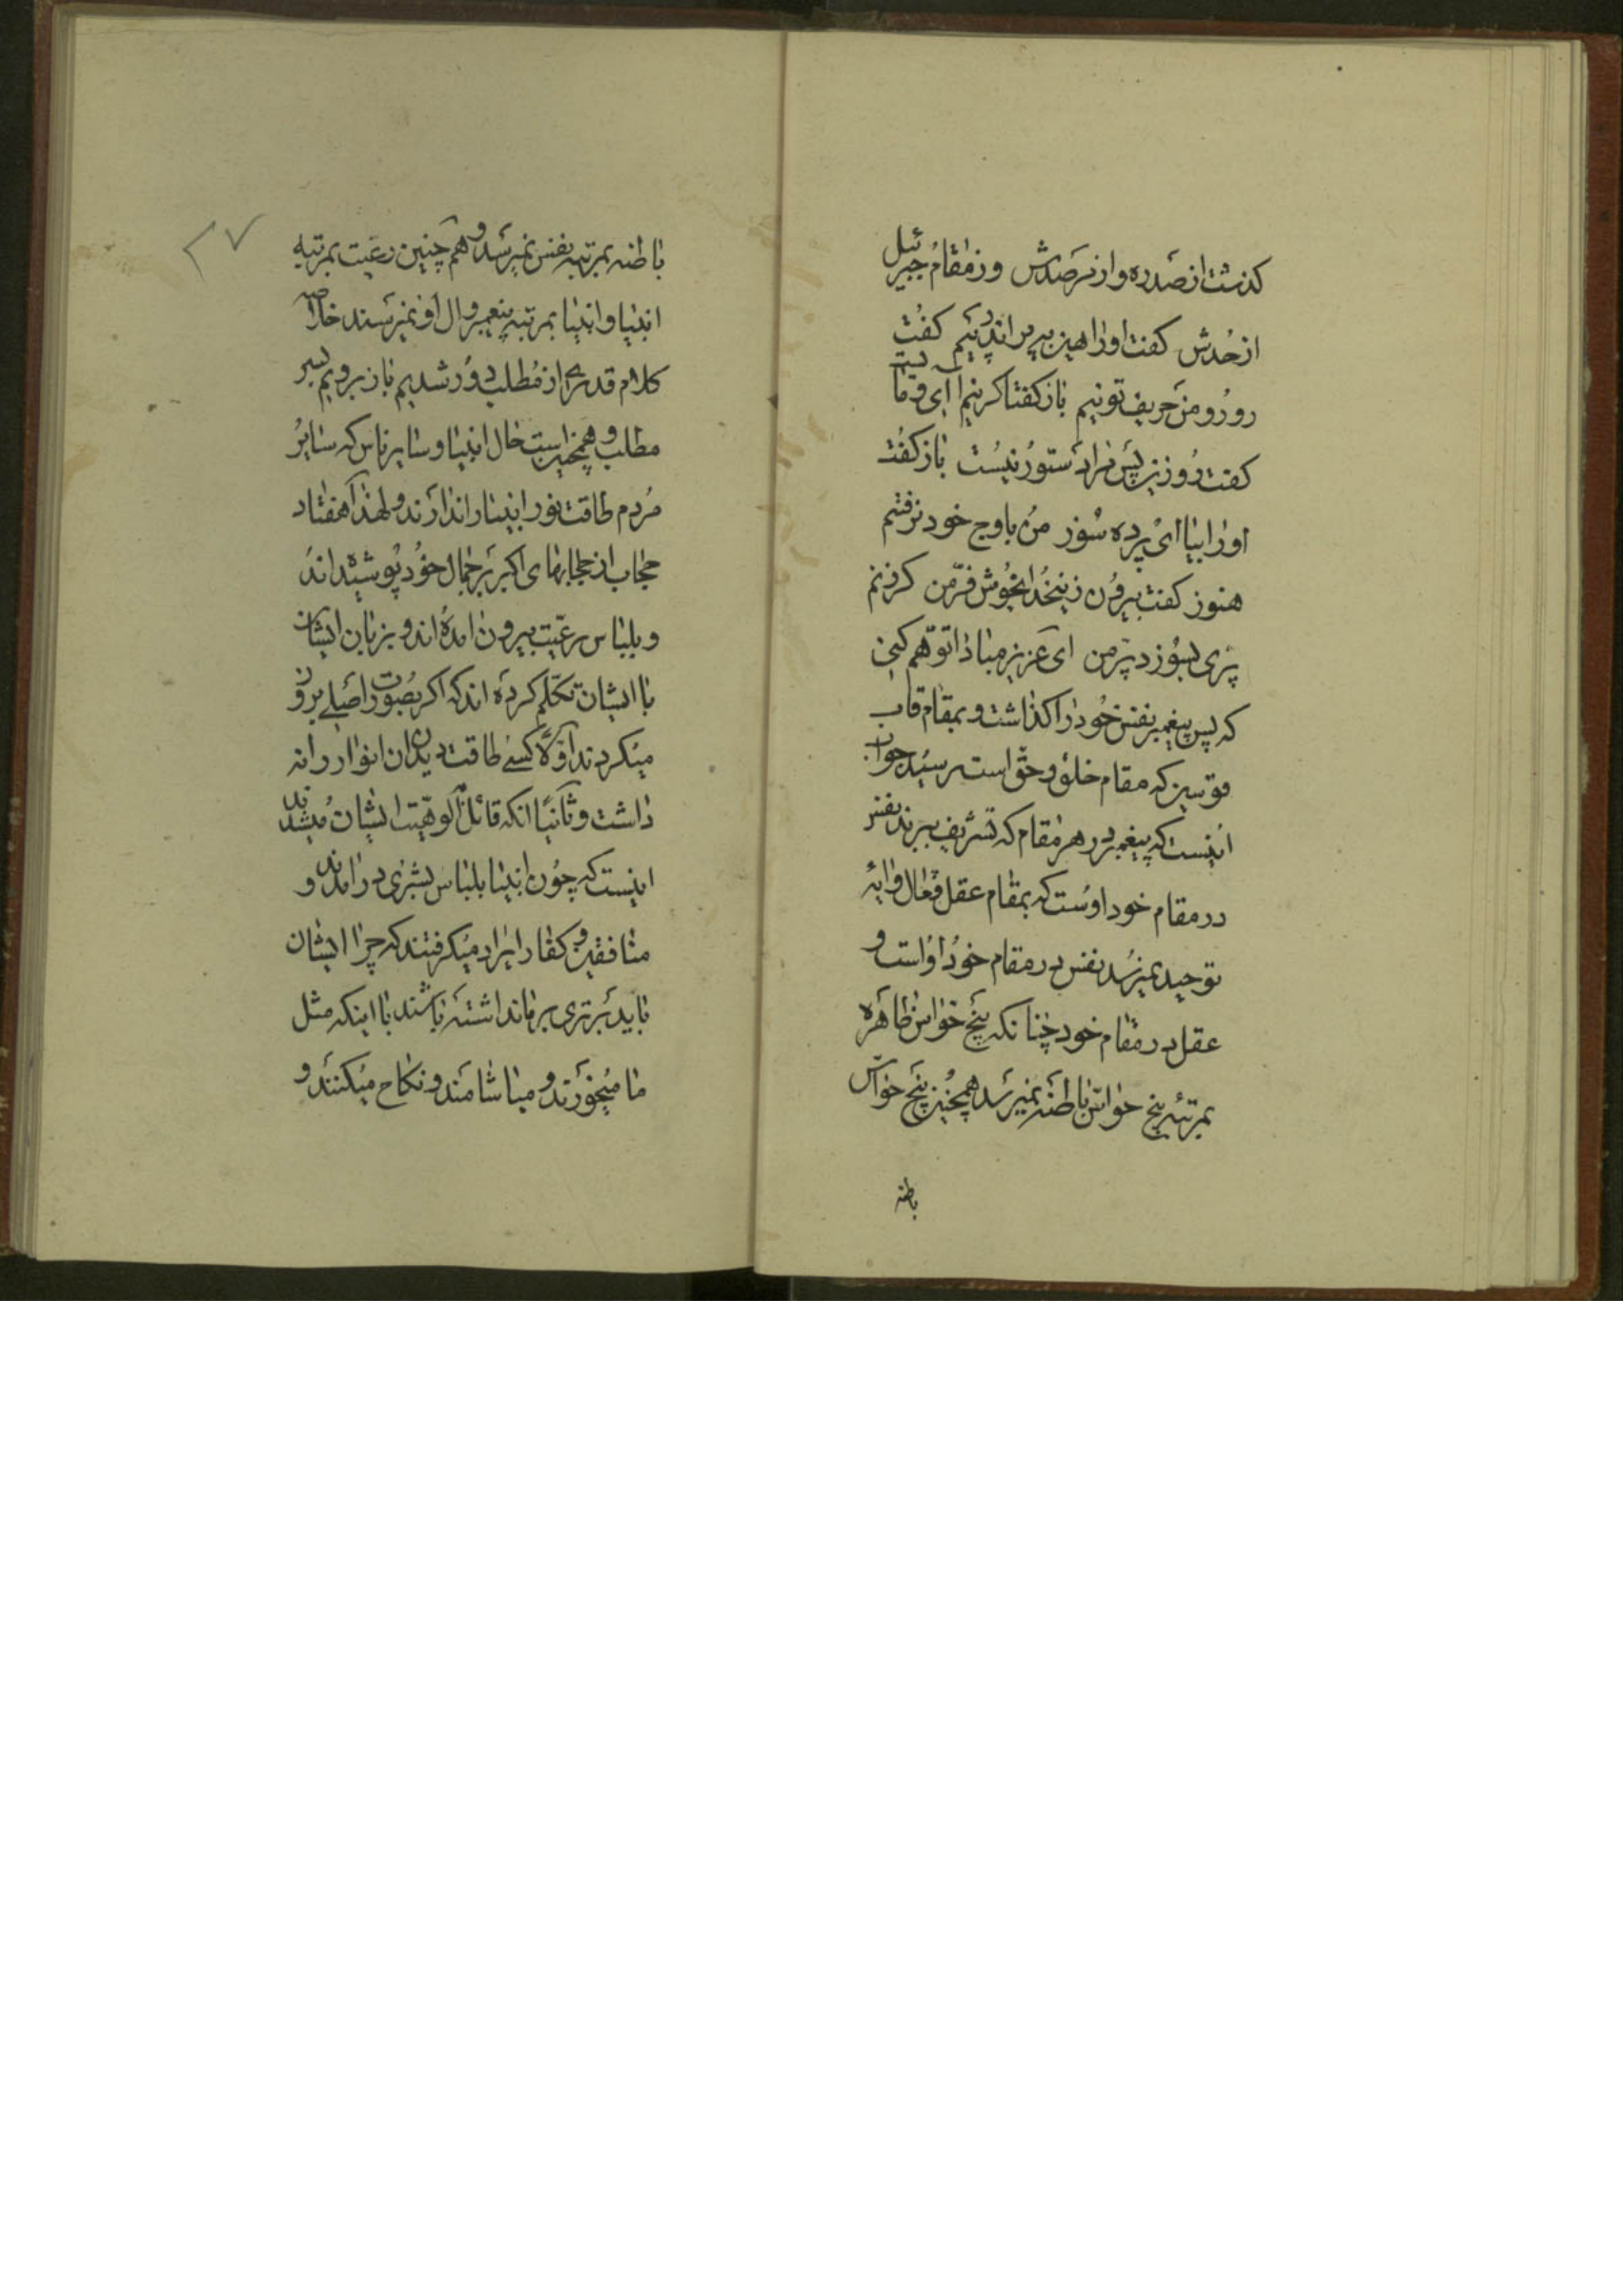 کذشت از صدره و از مرصدش وز مقام جبرئیل
از حدش کفت او را هین بپر اندر پیم کفت
رو رو من حریف تو نیم باز کفتا کز پیم آی و مایست
کفت رو زین پس مرا دستور نیست باز کفت
او را بیا ای پرده سوز من باوج خود نرفتم
هنوز کفت بیرون زین حد ای خوش فر من کر زنم
پری بسوزد پر من ای عزیز مبادا توهم کنی
که پس پیغمبر نفس خود را کذاشت و بمقام قاب
قوسین که مقام خلق و حق است رسید جواب
اینست که پیغمبر در هر مقام که تشریف ببرند نفس
در مقام خود اوست که بمقام عقل فعال و ایه
توحید نمیرسد نفس در مقام خود او است و
عقل در مقام خود چنانکه پنج حواس ظاهره
بمرتبه پنج حواس باطنه نمیرسد همچنین پنج حواس
باطنه
باطنه بمرتبه نفس نمیرسد و هم چنین رعیت بمرتبه
انبیا و انبیا بمرتبه پیغمبر و ال او نمیرسند خلاصه
کلام قدری از مطلب دور شدیم باز برویم بسر
مطلب و همچنین است حال انبیا و سایر ناس که سایر
مردم طاقت نور انبیا را ندارند و لهذا هفتاد
حجاب از حجابهای اکبر بر جمال خود پوشیده اند
و بلباس رعیت بیرون امده اند و بزبان ایشان
با ایشان تکلم کرده اند که اکر بصورت اصلی بروز
میکردند اولا کسی طاقت دیدن ان انوار را نه
داشت و ثانیا انکه قائل بالوهیت ایشان میشدند
اینست که چون انبیا بلباس بشری در امدند و
منافقین و کفار ایراد میکرفتند که چرا ایشان
باید برتری بر ما نداشته باشند با اینکه مثل
ما میخورند و میاشامند و نکاح میکنند و